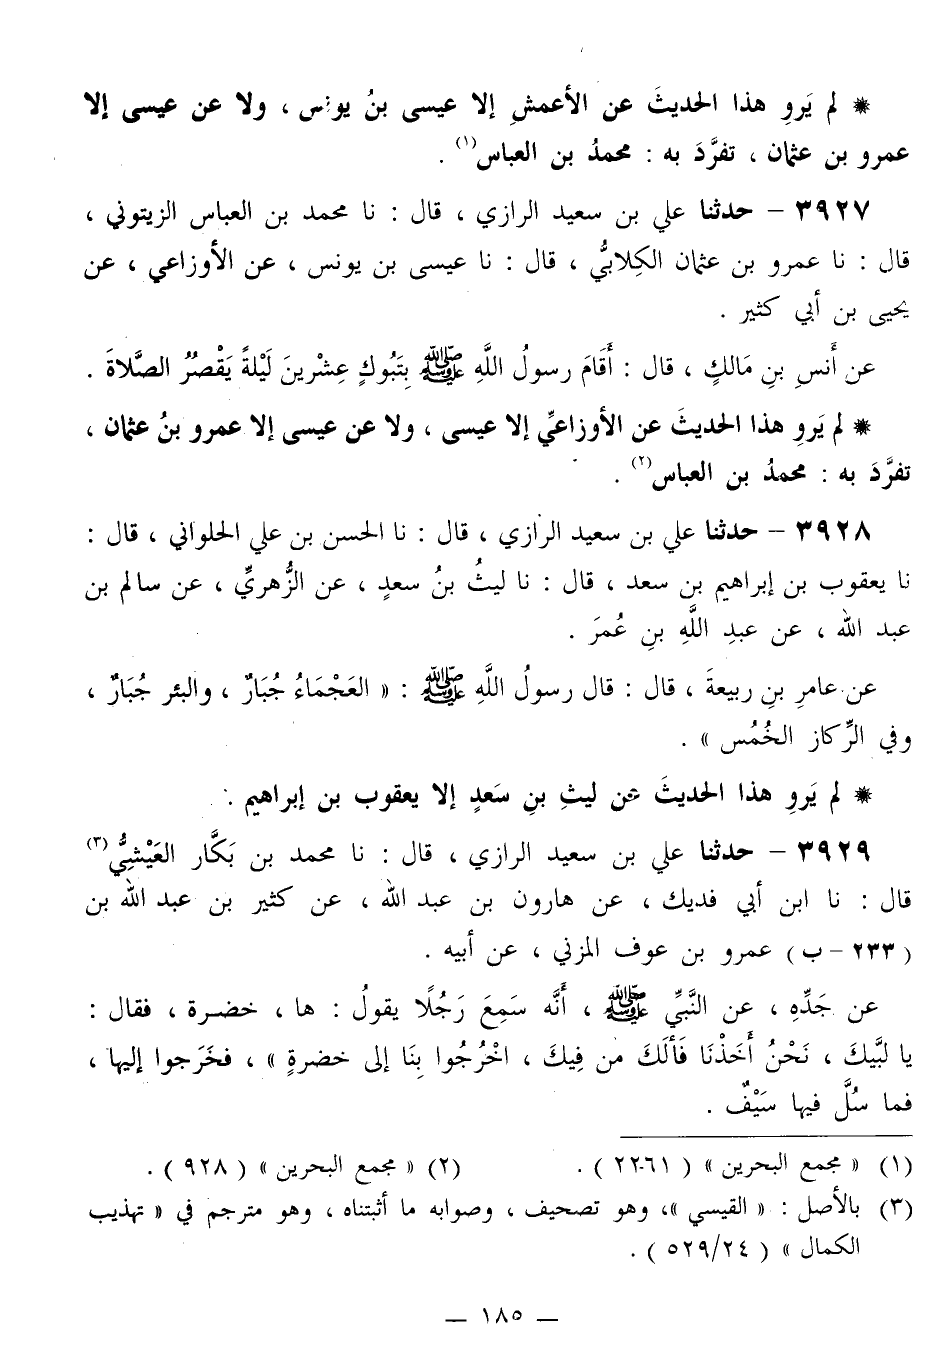 * لم يَروِ هذا الحديثَ عن الأعمشِ إلا عيسى بنُ يونس ، ولا عن عيسى إلا
عمرو بن عثمان ، تفرَّدَ به : محمدُ بن العباس(١) .
٣٩٢٧ – حدثنا علي بن سعيد الرازي ، قال : نا محمد بن العباس الزيتوني ،
قال : نا عمرو بن عثمان الكِلابيُّ ، قال : نا عيسى بن يونس ، عن الأوزاعي ، عن
يحيى بن أبي كثير .
عن أَنسِ بنِ مَالكٍ ، قال : أَقَامَ رسولُ اللَّهِ ﷺ بِتَبُوكٍ عِشْرينَ لَيْلةً يَقْصُرُ الصَّلاةَ .
* لم يَروِ هذا الحديثَ عن الأوزاعيِّ إلا عيسى ، ولا عن عيسى إلا عمرو بنُ عثمان ،
تفرَّدَ به : محمدُ بن العباس(٢) .
٣٩٢٨ – حدثنا علي بن سعيد الرازي ، قال : نا الحسن بن علي الحلواني ، قال :
نا يعقوب بن إبراهيم بن سعد ، قال : نا ليثُ بنُ سعدٍ ، عن الزُّهريِّ ، عن سالم بن
عبد الله ، عن عبدِ اللَّهِ بنِ عُمرَ .
عن عامرِ بنِ ربيعةَ ، قال : قال رسولُ اللَّهِ ﷺ : « العَجْمَاءُ جُبَارٌ ، والبئر جُبَارٌ ،
وفي الرِّكازِ الخُمُس » .
* لم يَروِ هذا الحديثَ عن ليثِ بنِ سَعدٍ إلا يعقوب بن إبراهيم .
٣٩٢٩ – حدثنا علي بن سعيد الرازي ، قال : نا محمد بن بَكَّار العَيْشِيُّ(٣)
قال : نا ابن أبي فديك ، عن هارون بن عبد الله ، عن كثير بن عبد الله بن
( ٢٣٣ – ب ) عمرو بن عوف المزني ، عن أبيه .
عن جَدِّهِ ، عن النَّبيِّ ﷺ ، أَنَّه سَمِعَ رَجُلًا يقولُ : ها ، خضـرة ، فقال :
يا لبَّيكَ ، نَحْنُ أَخَذْنَا فَألَكَ من فِيكَ ، اخْرُجُوا بِنَا إلى خضرةٍ » ، فخَرَجوا إليها ،
فما سُلَّ فيها سَيْفٌ .
(١) « مجمع البحرين » ( ٢٢٦١ ) . (٢) « مجمع البحرين » ( ٩٢٨ ) .
(٣) بالأصل : « القيسي »، وهو تصحيف ، وصوابه ما أثبتناه ، وهو مترجم في « تهذيب
الكمال » ( ٥٢٩/٢٤ ) .
— ١٨٥ —